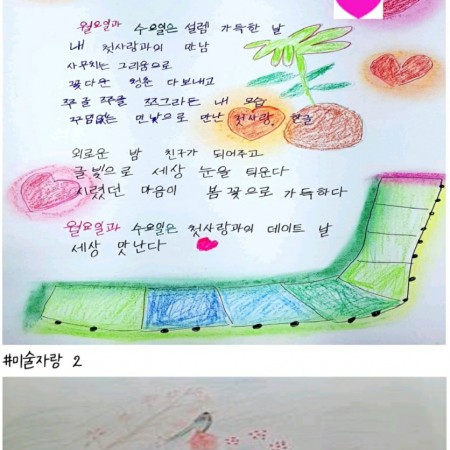 월요일과 수요일은 설렘 가득한 날
내 첫사랑과의 만남
사무치는 그리움으로
꽃다운 청춘 다보내고
쭈글 쭈글 쪼그라든 내 모습
꾸밈없는 민낯으로 만난 첫사랑. 한글
외로운 밤 친구가 되어주고
글빛으로 세상 눈을 틔운다
시렸던 마음이 봄꽃으로 가득하다
월요일과 수요일은 첫사랑과의 데이트 날
세상 맛난다
#미술자랑 2